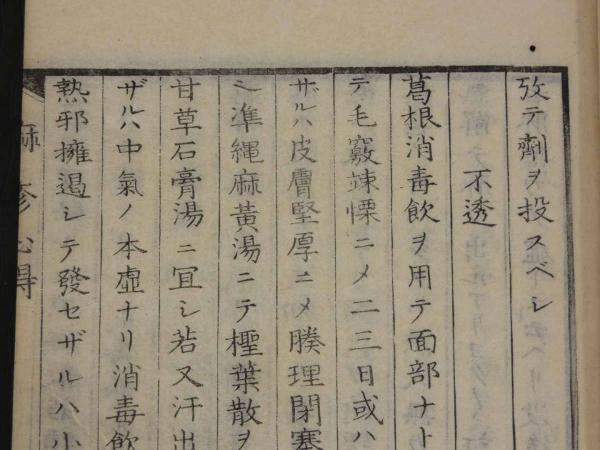 攷テ劑ヲ投スベシ
不透
葛根消毒飲ヲ用テ面部ナト
テ毛竅竦慄ニメ二三日或ハ
ザルハ皮膚堅厚ニメ腠理閉塞
ニ準縄麻黄湯ニテ檉葉散ヲ
甘草石膏湯ニ冝シ若又汗出
ザルハ中氣ノ本虚ナリ消毒飲
熱邪擁遏シテ發セザルハ小
麻疹心得